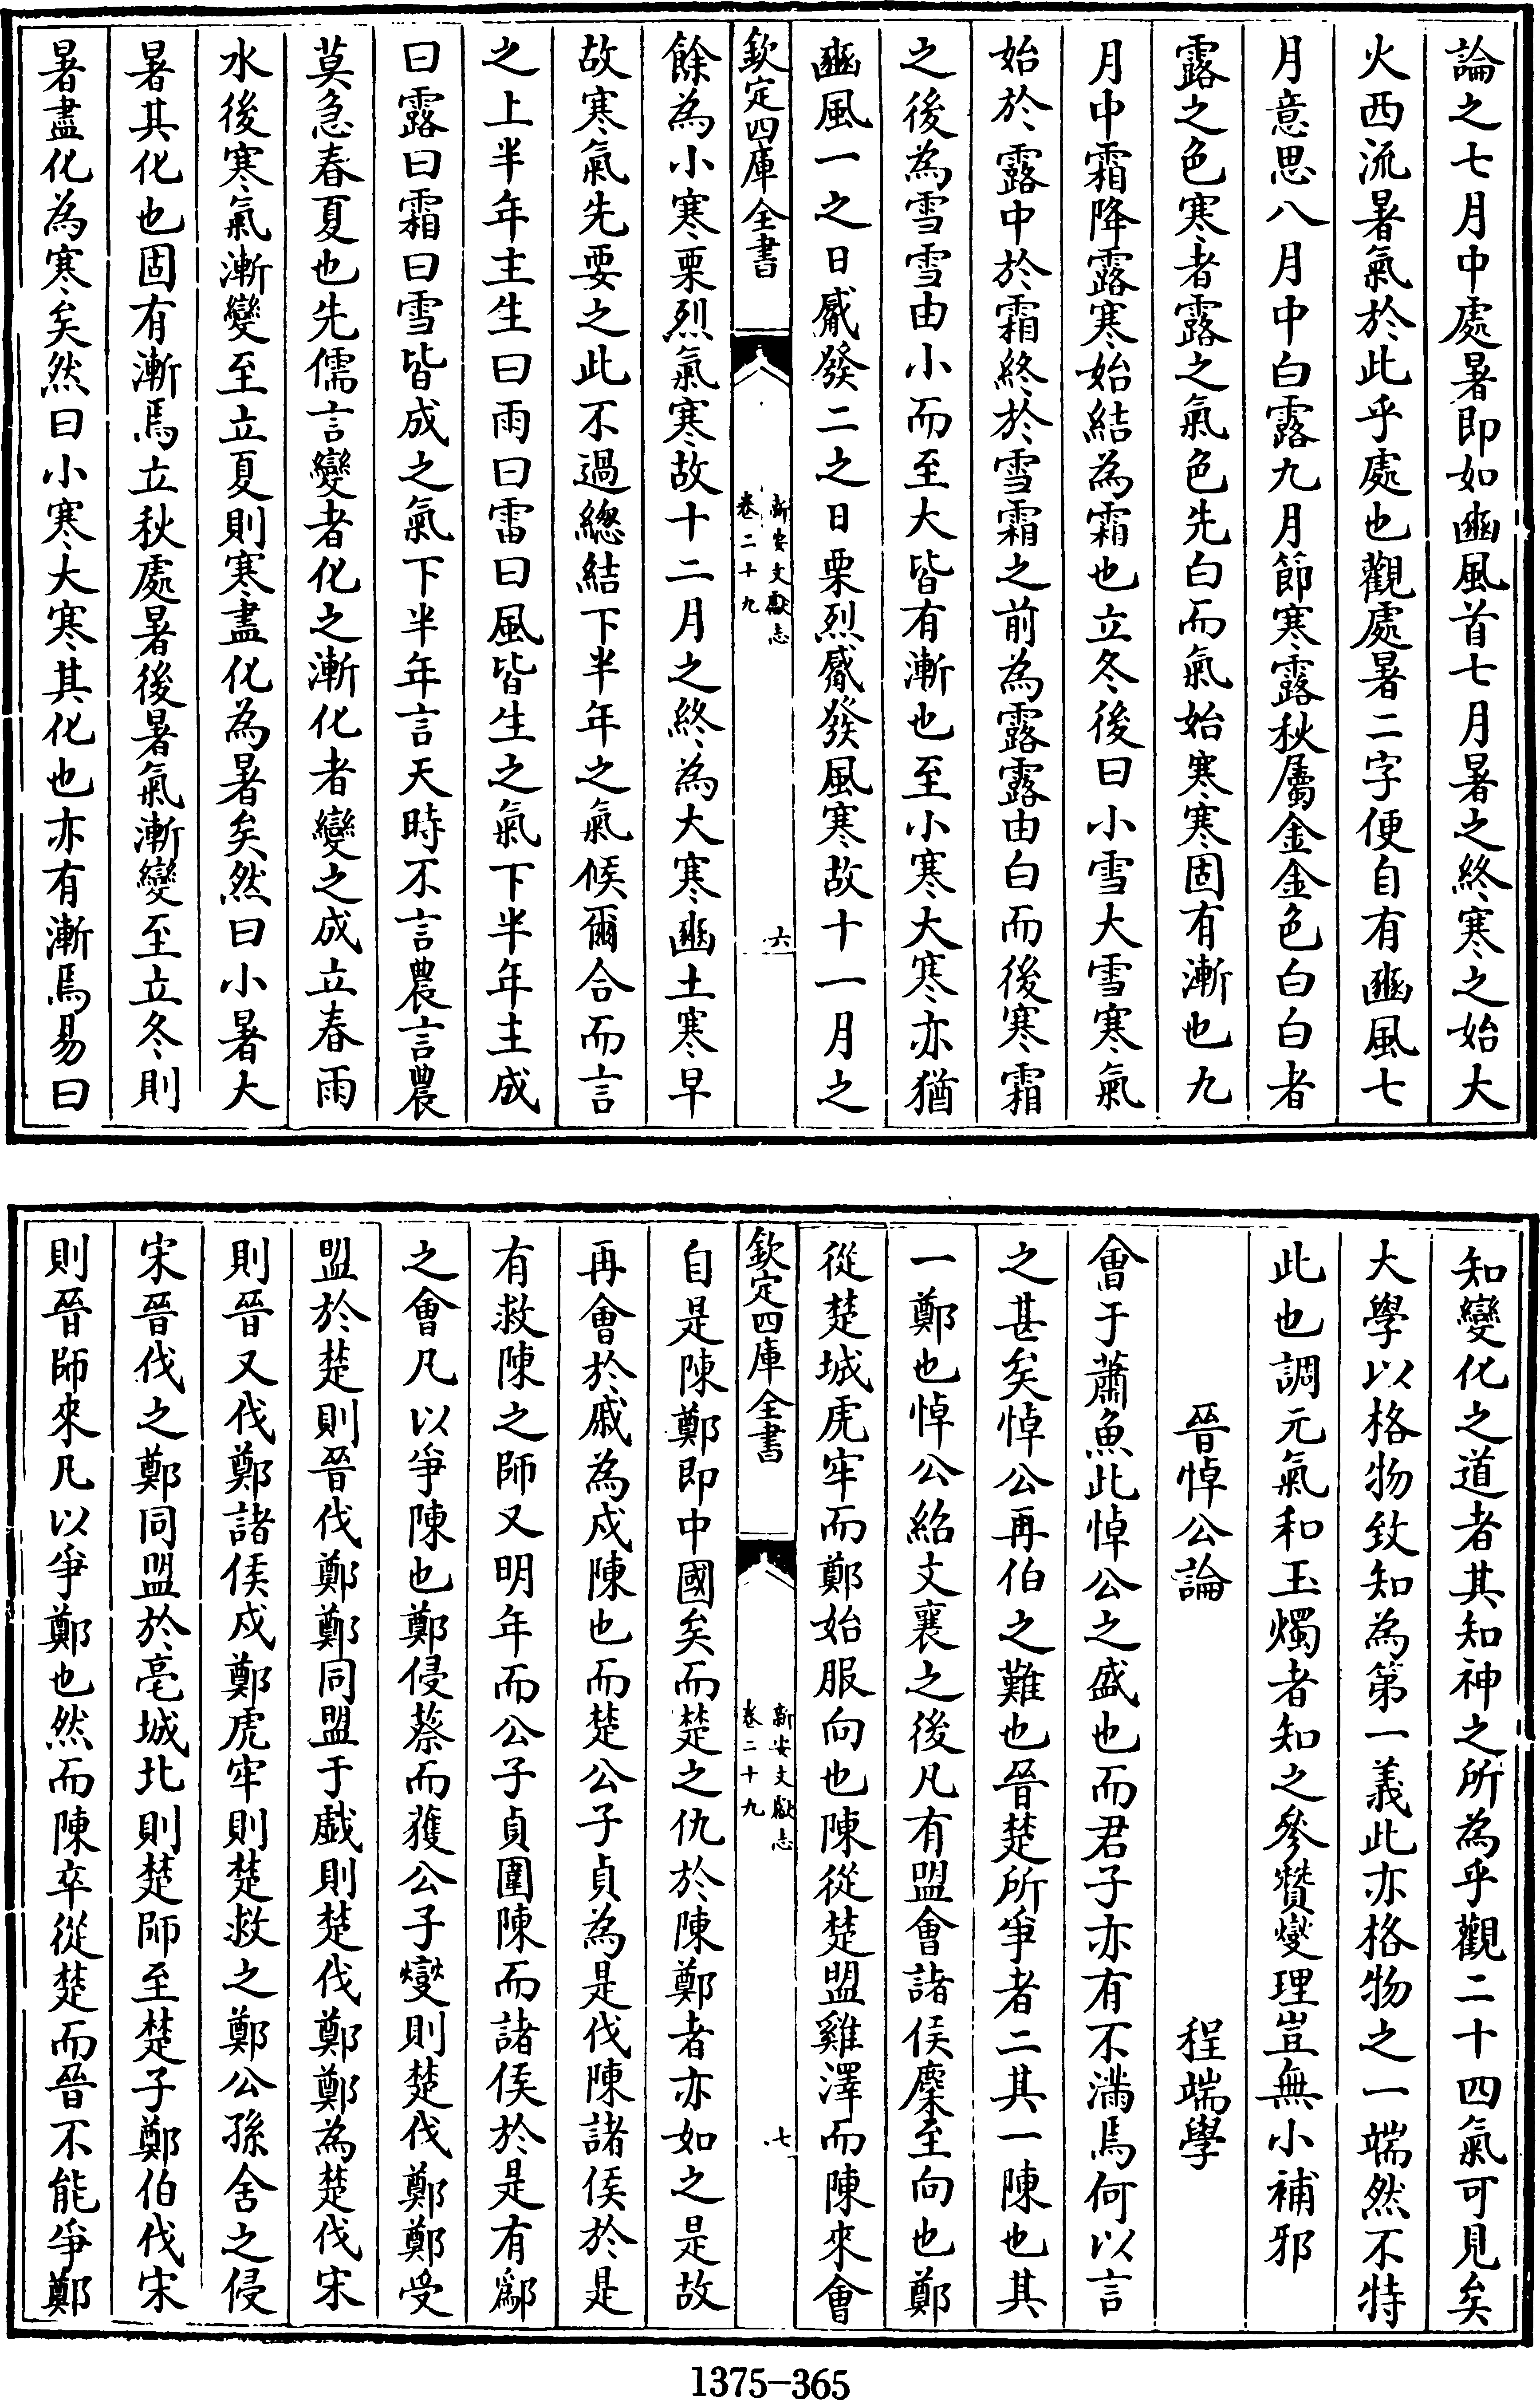 論之七月中處暑即如豳風首七月暑之終寒之始大
火西流暑氣於此乎處也觀處暑二字便自有豳風七
月意思八月中白露九月節寒露秋屬金金色白白者
露之色寒者露之氣色先白而氣始寒寒固有漸也九
月中霜降露寒始結為霜也立冬後曰小雪大雪寒氣
始於露中於霜終於雪霜之前為露露由白而後寒霜
之後為雪雪由小而至大皆有漸也至小寒大寒亦猶
豳風一之日觱發二之日栗烈觱發風寒故十一月之
欽定四庫全書
新安文獻志
卷二十九
六
餘為小寒栗烈氣寒故十二月之終為大寒豳土寒早
故寒氣先要之此不過總結下半年之氣候爾合而言
之上半年主生曰雨曰雷曰風皆生之氣下半年主成
曰露曰霜曰雪皆成之氣下半年言天時不言農言農
莫急春夏也先儒言變者化之漸化者變之成立春雨
水後寒氣漸變至立夏則寒盡化為暑矣然曰小暑大
暑其化也固有漸焉立秋處暑後暑氣漸變至立冬則
暑盡化為寒矣然曰小寒大寒其化也亦有漸焉易曰
知變化之道者其知神之所為乎觀二十四氣可見矣
大學以格物致知為第一義此亦格物之一端然不特
此也調元氣和玉燭者知之參贊燮理豈無小補邪
晉悼公論 程端學
會于蕭魚此悼公之盛也而君子亦有不滿焉何以言
之甚矣悼公再伯之難也晉楚所爭者二其一陳也其
一鄭也悼公紹文襄之後凡有盟會諸侯麇至向也鄭
從楚城虎牢而鄭始服向也陳從楚盟雞澤而陳來會
欽定四庫全書
新安文獻志
卷二十九
七
自是陳鄭即中國矣而楚之仇於陳鄭者亦如之是故
再會於戚為戍陳也而楚公子貞為是伐陳諸侯於是
有救陳之師又明年而公子貞圍陳而諸侯於是有鄬
之會凡以爭陳也鄭侵蔡而獲公子燮則楚伐鄭鄭受
盟於楚則晉伐鄭鄭同盟于戲則楚伐鄭鄭為楚伐宋
則晉又伐鄭諸侯戍鄭虎牢則楚救之鄭公孫舍之侵
宋晉伐之鄭同盟於亳城北則楚師至楚子鄭伯伐宋
則晉師來凡以爭鄭也然而陳卒從楚而晉不能爭鄭
1375-365